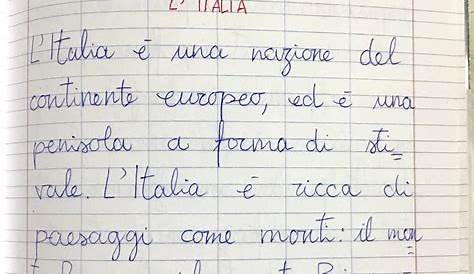 L'ITALIA
L'Italia é una nazione del
continente europeo, ed é una
penisola a forma di sti=
vale. L'Italia é ricca di
paesaggi come monti: il mon